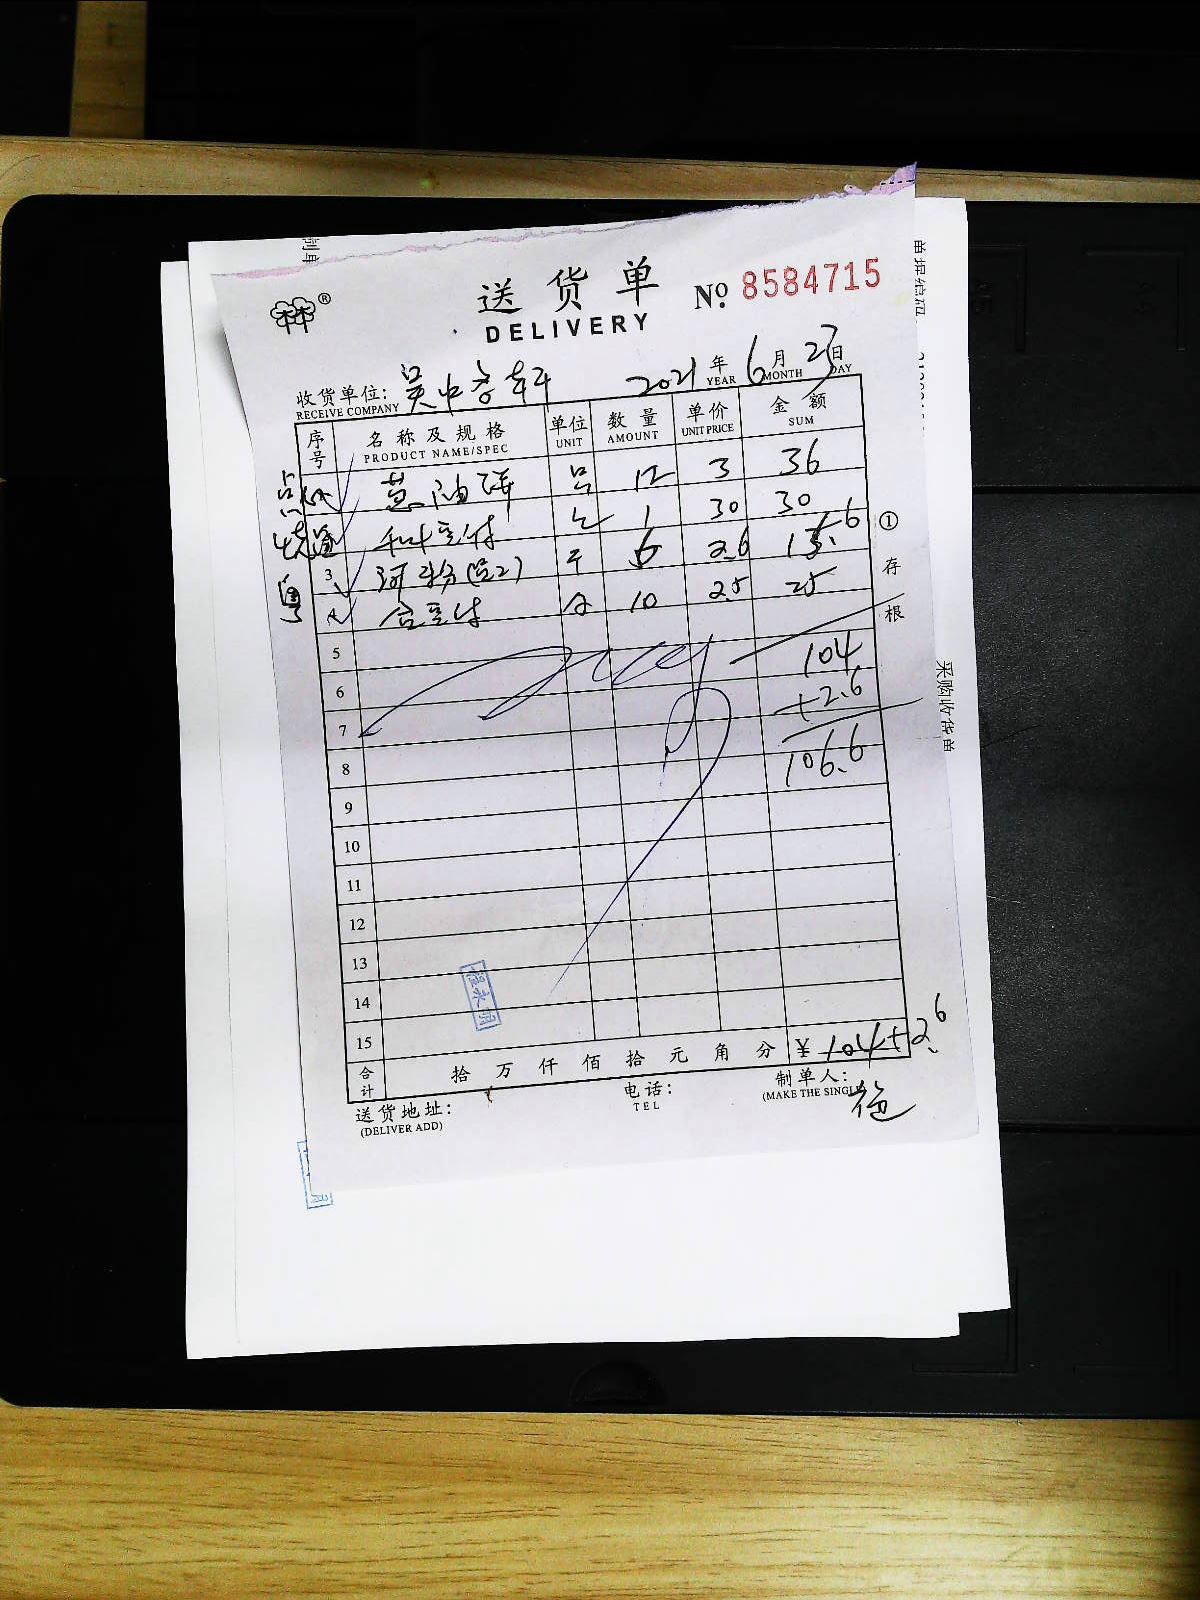 送货单
DELIVERY
№ 8584715
收货单位: 吴中 2021年 6月 23日
RECEIVE COMPANY YEAR MONTH DAY
序号 名称及规格 单位 数量 单价 金额
PRODUCT NAME/SPEC UNIT AMOUNT UNIT PRICE SUM
点心 葱油饼 12 3 36
烧 1 30 30
粤 3 河粉 6 2.6 15.6
4 10 2.5 25
5 104
6 +2.6
7
8 106.6
9
10
11
12
13
14
15
合计 拾 万 仟 佰 拾 元 角 分 ¥ 104+2.6
送货地址: 电话: 制单人:
(DELIVER ADD) TEL (MAKE THE SINGLE
① 存根
采购收货单